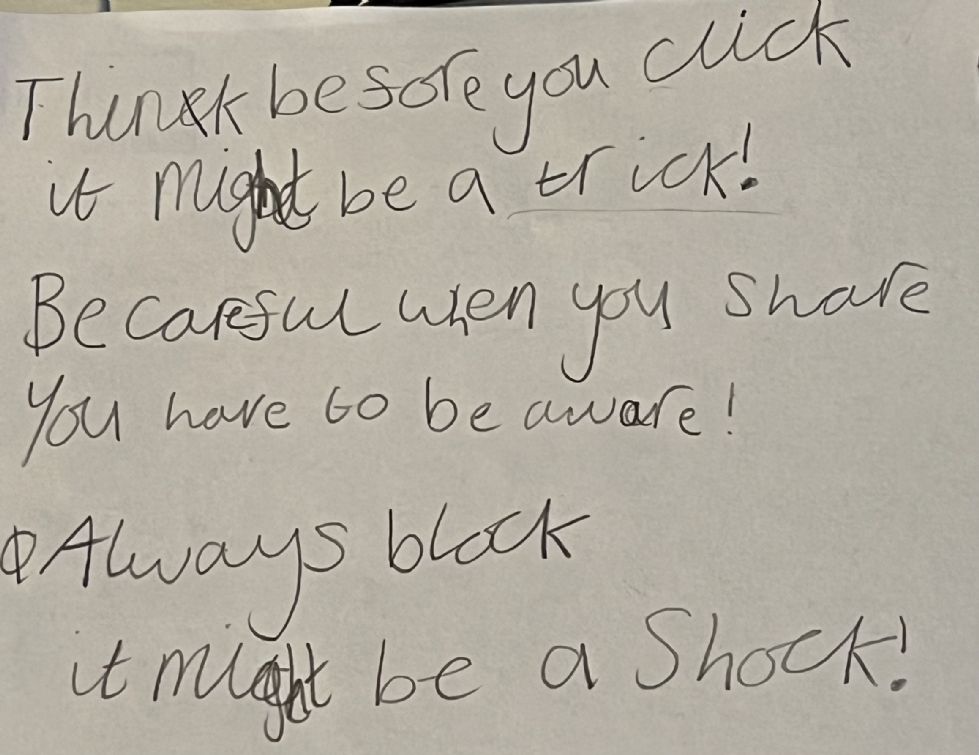 Think before you click
it might be a trick!
Be careful when you share
You have to be aware!
Always block
it might be a Shock!